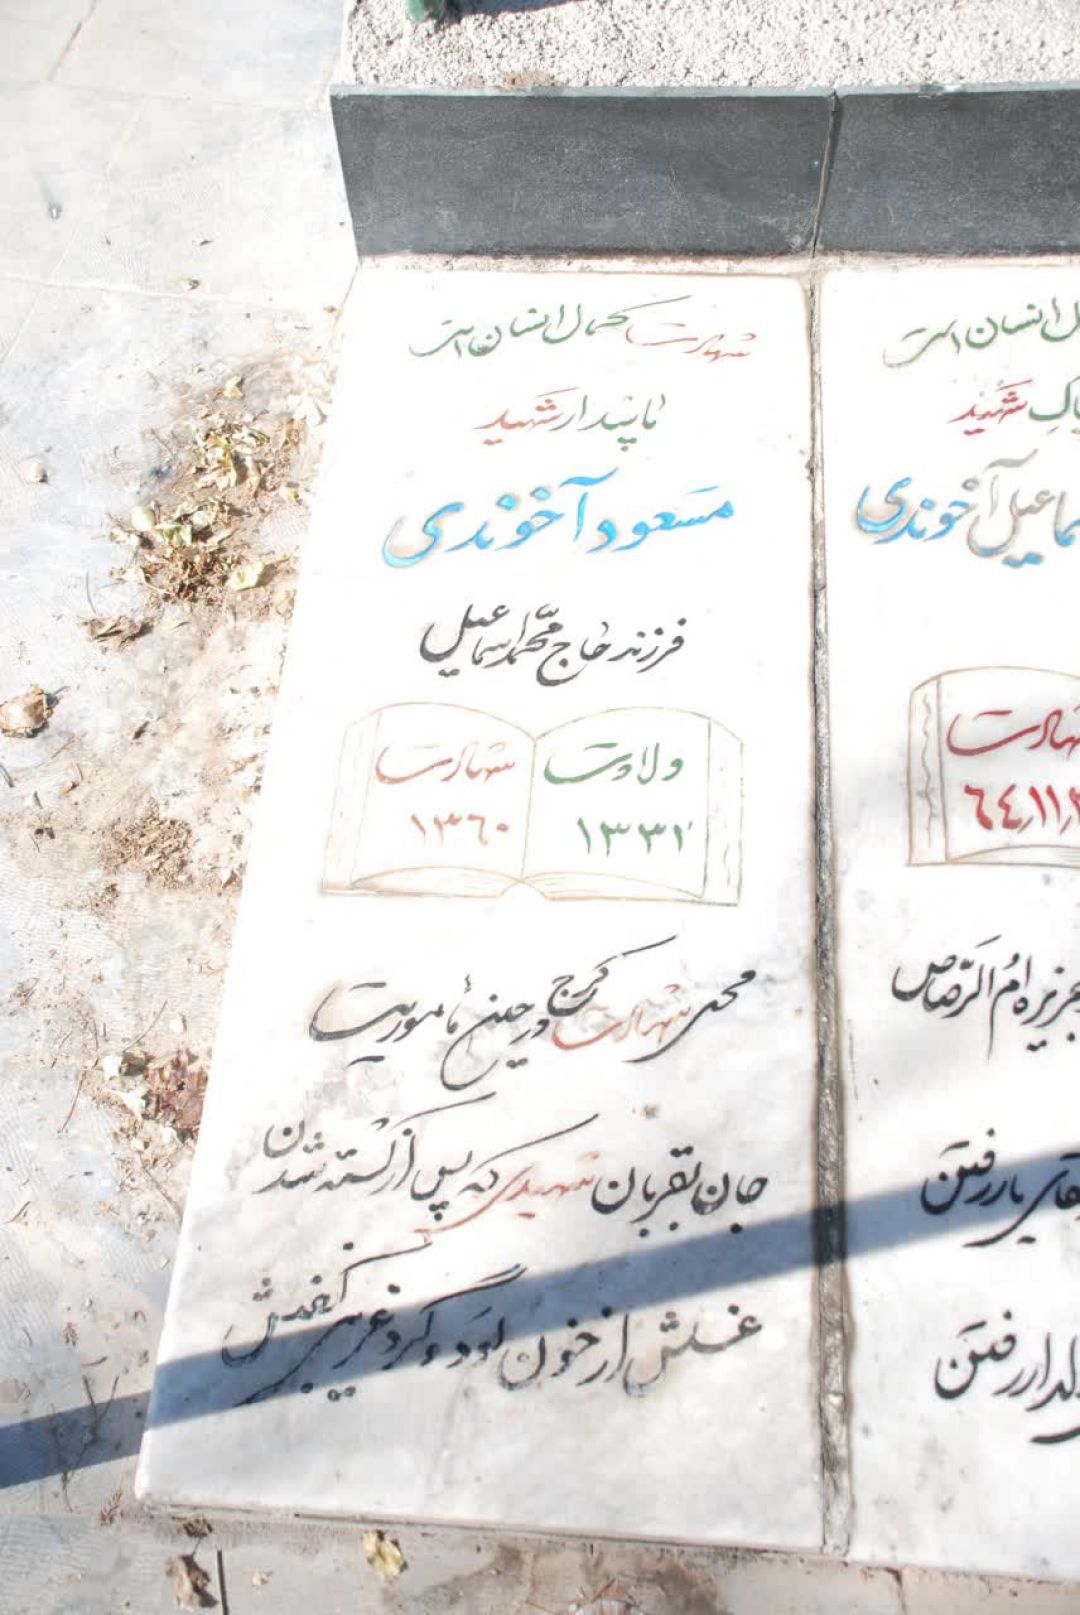 شهادت کمال انسان است
پاسدار شهید
مسعود آخوندی
فرزند حاج محمد اسماعیل
ولادت شهادت
۱۳۳۲ ۱۳۶۰
محل شهادت کرج در حین مأموریت
جان بقربان شهیدی که پس از کشته شدن
غسلش از خون بود و گرد غریبی کفنش
ل انسان است
پاک شهید
ماعیل آخوندی
شهادت
٦٤٫١١٫٢
جزیره ام الرصاص
یار رفتن
لدار رفتن